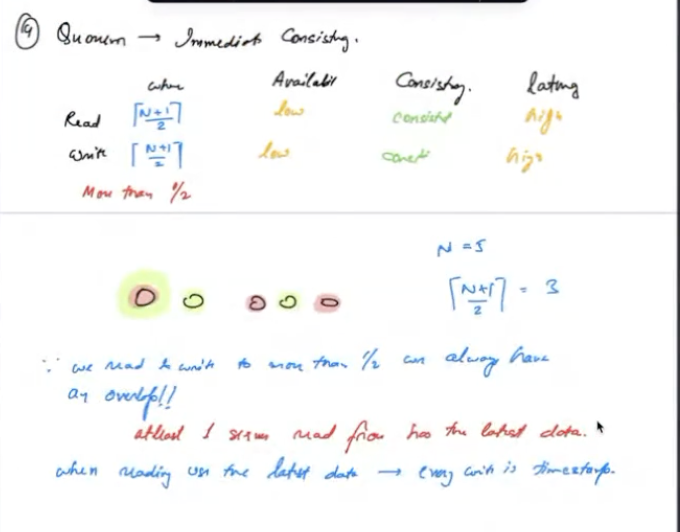 ④ Quorum → Immediate Consistency.
where Availabilt Consistency. latency
Read ⌈N+1/2⌉ low consistent high
Write ⌈N+1/2⌉ low high
More than 1/2
N = 5
⌈N+1/2⌉ = 3
∵ we read & write to more than 1/2 we always have
an overlap!!
atleast 1 server read from has the latest data.
when reading use the latest data → every write is timestamp.